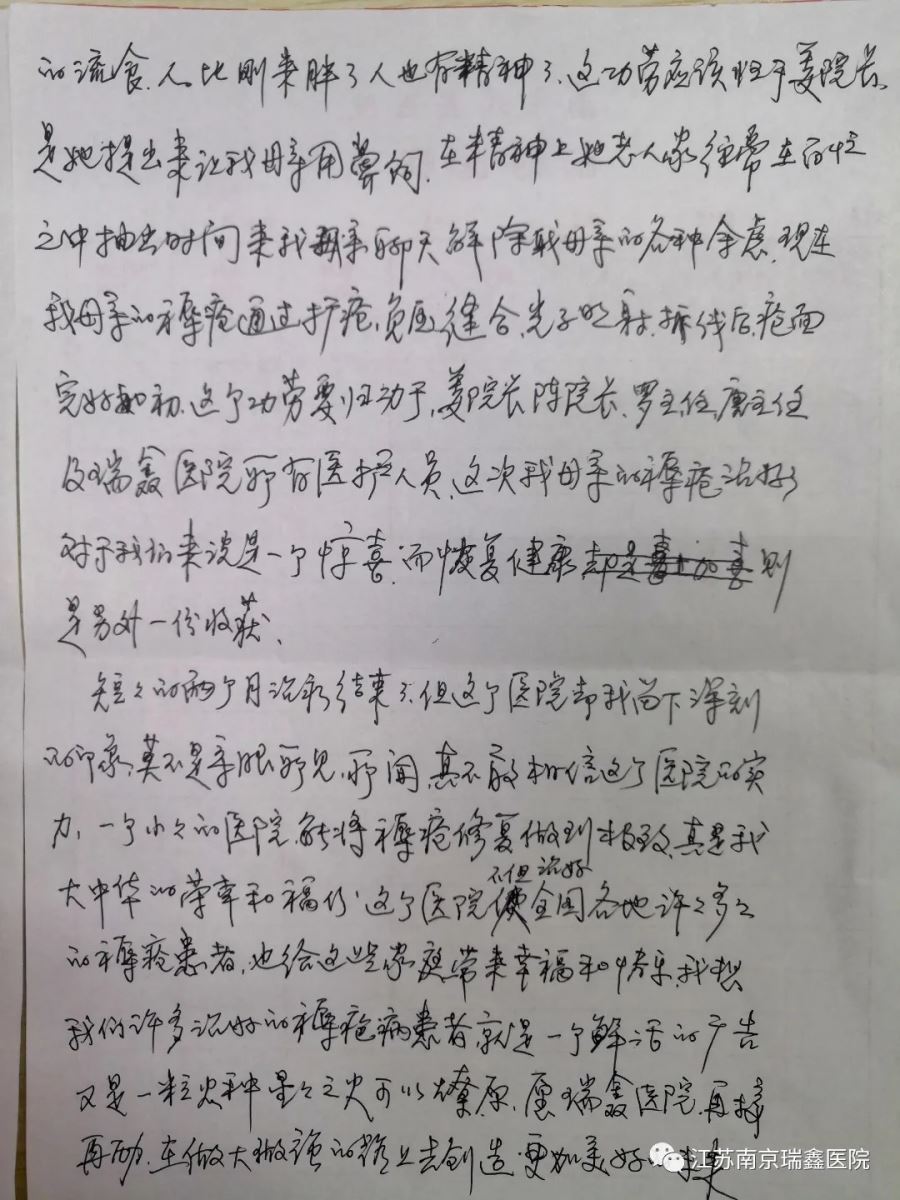 的流食、人比刚来胖了人也有精神了、这功劳应该归于姜院长、
是她提出来让我母亲用鼻饲、在精神上她老人家经常在百忙
之中抽出时间来我母亲聊天解除我母亲的各种余虑、现在
我母亲的褥疮通过扩疮、负压、缝合、光子照射、拆线后、疮面
完好如初、这个功劳要归功于、姜院长、陈院长、罗主任、唐主任
及瑞鑫医院所有医护人员、这次我母亲的褥疮治好
对于我们来说是一个惊喜、而恢复健康却是喜上加喜则
是另外一份收获、
短々的两个月治疗结束了、但这个医院却我留下深刻
的印象、莫不是亲眼所见、所闻、真不敢相信这个医院的实
力、一个小々的医院、能将褥疮修复做到极致、真是我
大中华的荣幸和福、这个医院不但治好全国各地许々多々
的褥疮患者、也给这些家庭带来幸福和快乐、我想
我们许多治好的褥疮病患者、就是一个鲜活的广告
又是一粒火种星々之火可以燎原、愿瑞鑫医院、再接
再励、在做大做强的路上去创造更加美好的未来
江苏南京瑞鑫医院